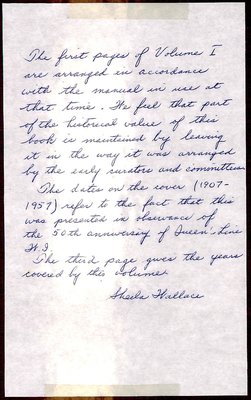 The first pages of Volume I
are arranged in accordance
with the manual in use at
that time. We feel that part
of the historical value of this
book is maintained by leaving
it in the way it was arranged
by the early curators and committees.
The dates on the cover (1907-
1957) refer to the fact that this
was presented in observance of
the 50th anniversary of Queen's Line
W.I.
The third page gives the years
covered by this volume.
Sheila Wallace